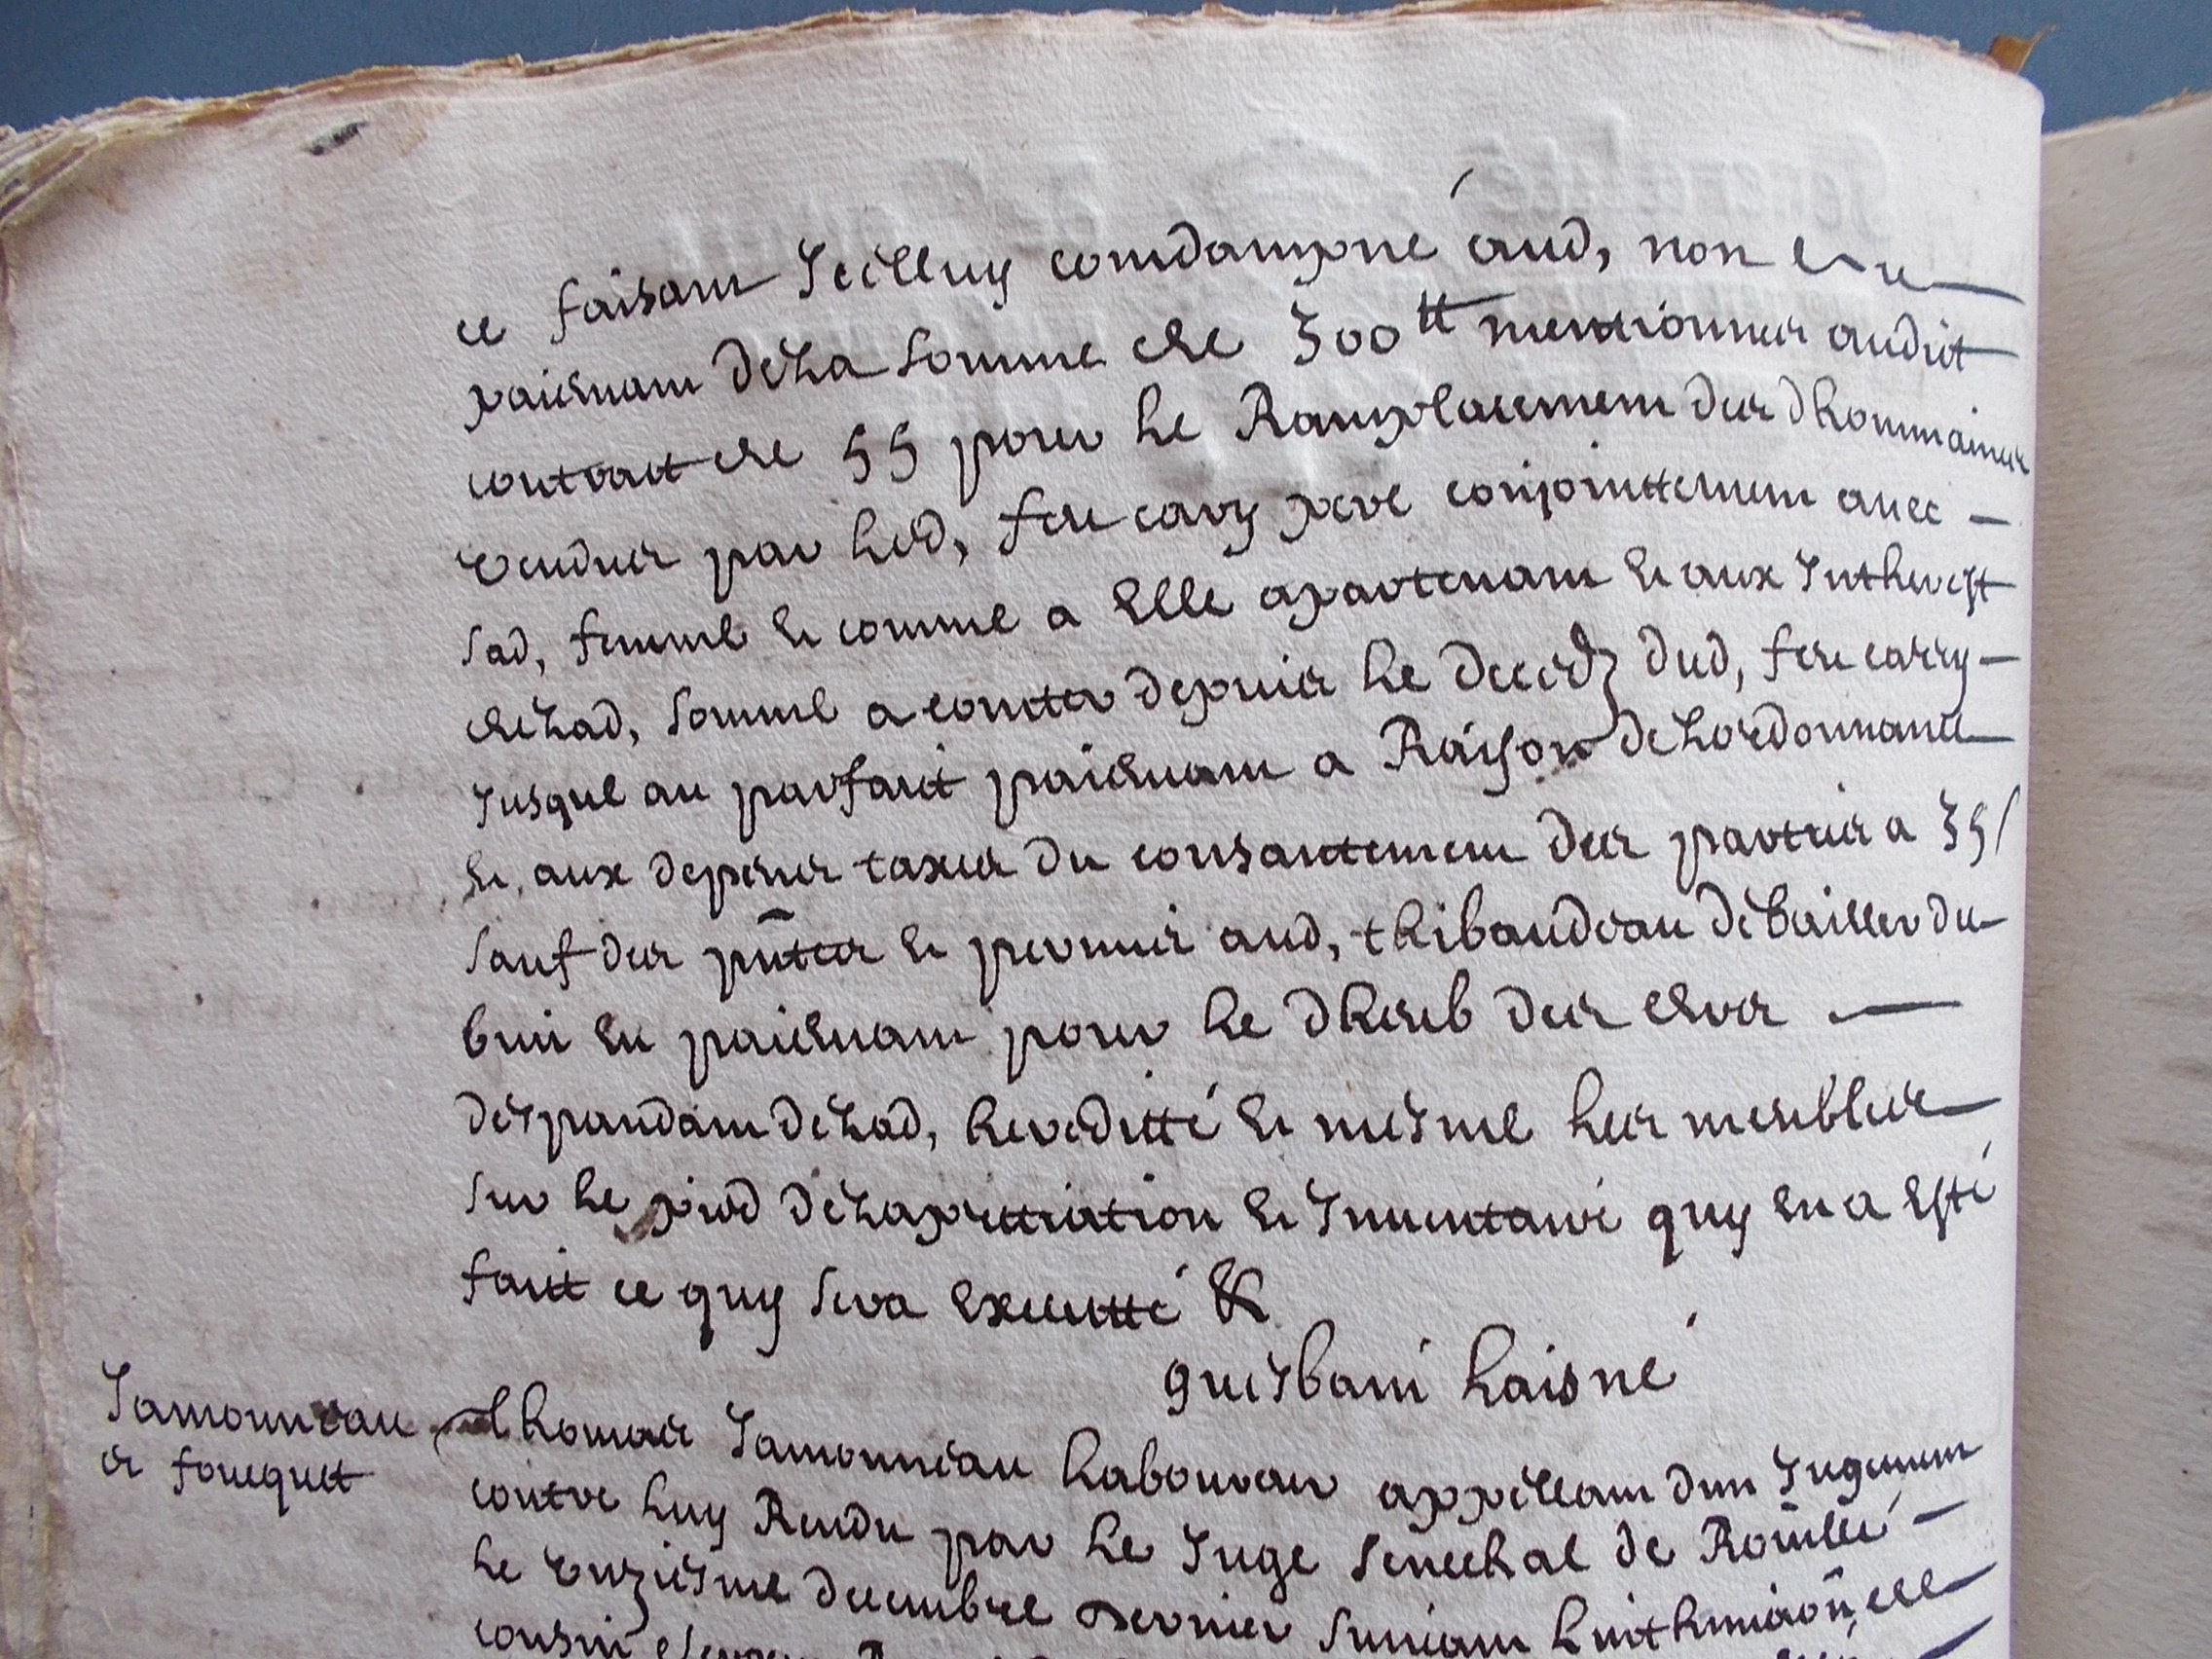 ce faisant Icelluy comdampné aud, non
paiement de La somme de 300 tt mentionnee audit
contract de 55 pour le Ramplacement des dhommaines
vendues par led, feu cary pere conjointtement avec
sad, femme Et comme a Elle apartenant Et aux Intherest
de Lad, somme a conter depuis le deceds dud, feu carry
Jusque au parfaict paiement a Raison de Lordonnance
Et aux depens taxes du consantement des parties a 35/
sauf des pntes Et permis aud, thibaudeau de bailler du
bien En paiement pour le dheub des
despandant de Lad, heredité Et mesme les meubles
sur le pied de Lapretiation Et Inventaire quy En a Esté
faict ce quy sera Executté &
guesbani laisné
Jamonneau
et foucquet
thomas Jamonneau laboureur appellant dun Jugement
contre luy Rendu par le Juge senechal de Rouillé
le unziesme decembre dernier suivant de